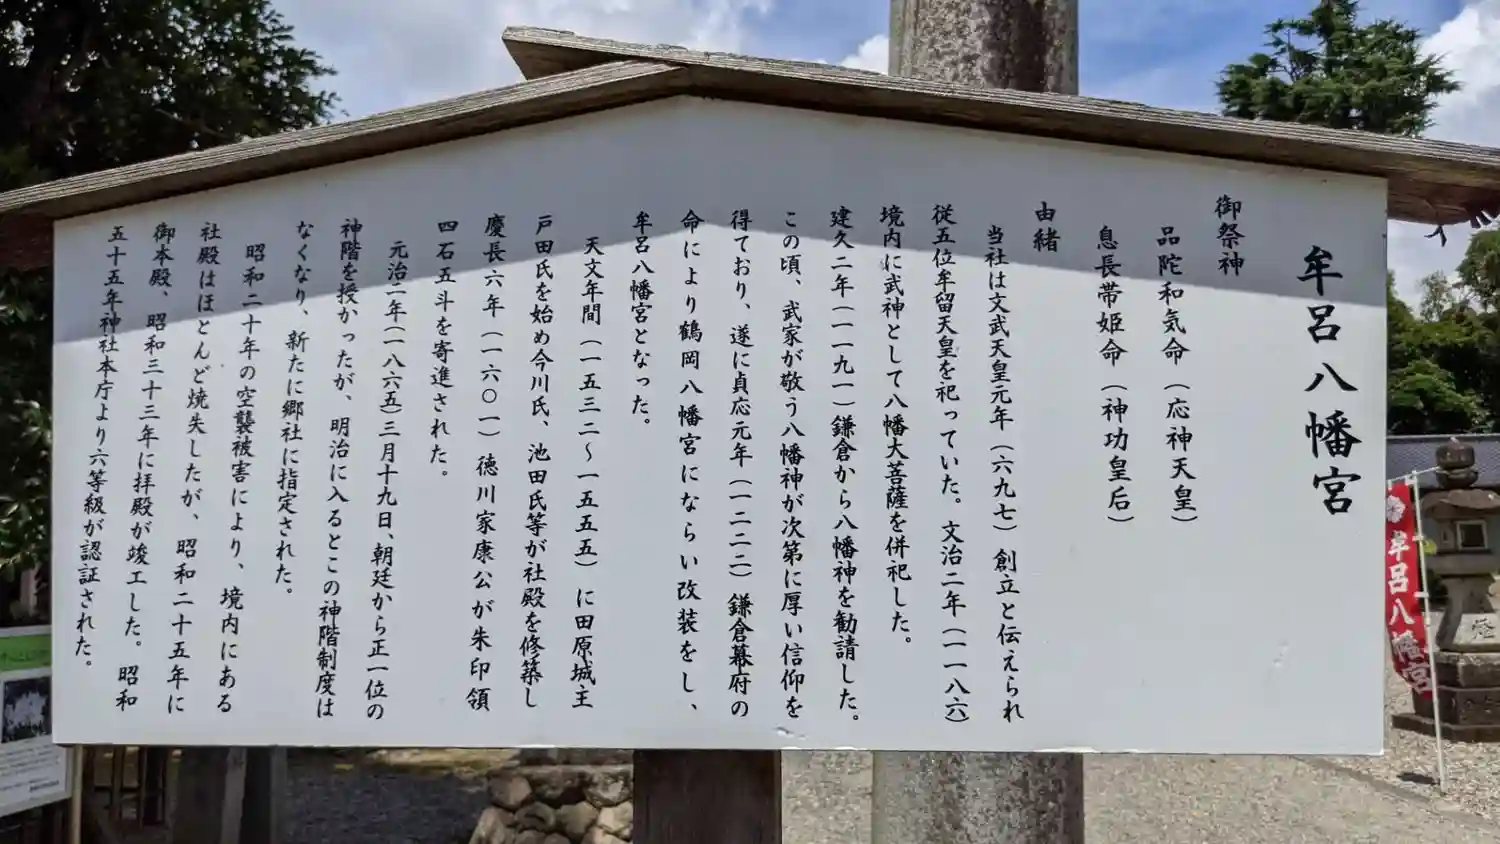 牟呂八幡宮
御祭神
品陀和気命（応神天皇）
息長帯姫命（神功皇后）
由緒
当社は文武天皇元年（六九七）創立と伝えられ
従五位牟留天皇を祀っていた。文治二年（一一八六）
境内に武神として八幡大菩薩を併祀した。
建久二年（一一九一）鎌倉から八幡神を勧請した。
この頃、武家が敬う八幡神が次第に厚い信仰を
得ており、遂に貞応元年（一二二二）鎌倉幕府の
命により鶴岡八幡宮にならい改装をし、
牟呂八幡宮となった。
天文年間（一五三二～一五五五）に田原城主
戸田氏を始め今川氏、池田氏等が社殿を修築し
慶長六年（一六〇一）徳川家康公が朱印領
四石五斗を寄進された。
元治二年（一八六五）三月十九日、朝廷から正一位の
神階を授かったが、明治に入るとこの神階制度は
なくなり、新たに郷社に指定された。
昭和二十年の空襲被害により、境内にある
社殿はほとんど焼失したが、昭和二十五年に
御本殿、昭和三十三年に拝殿が竣工した。昭和
五十五年神社本庁より六等級が認証された。
牟呂八幡宮